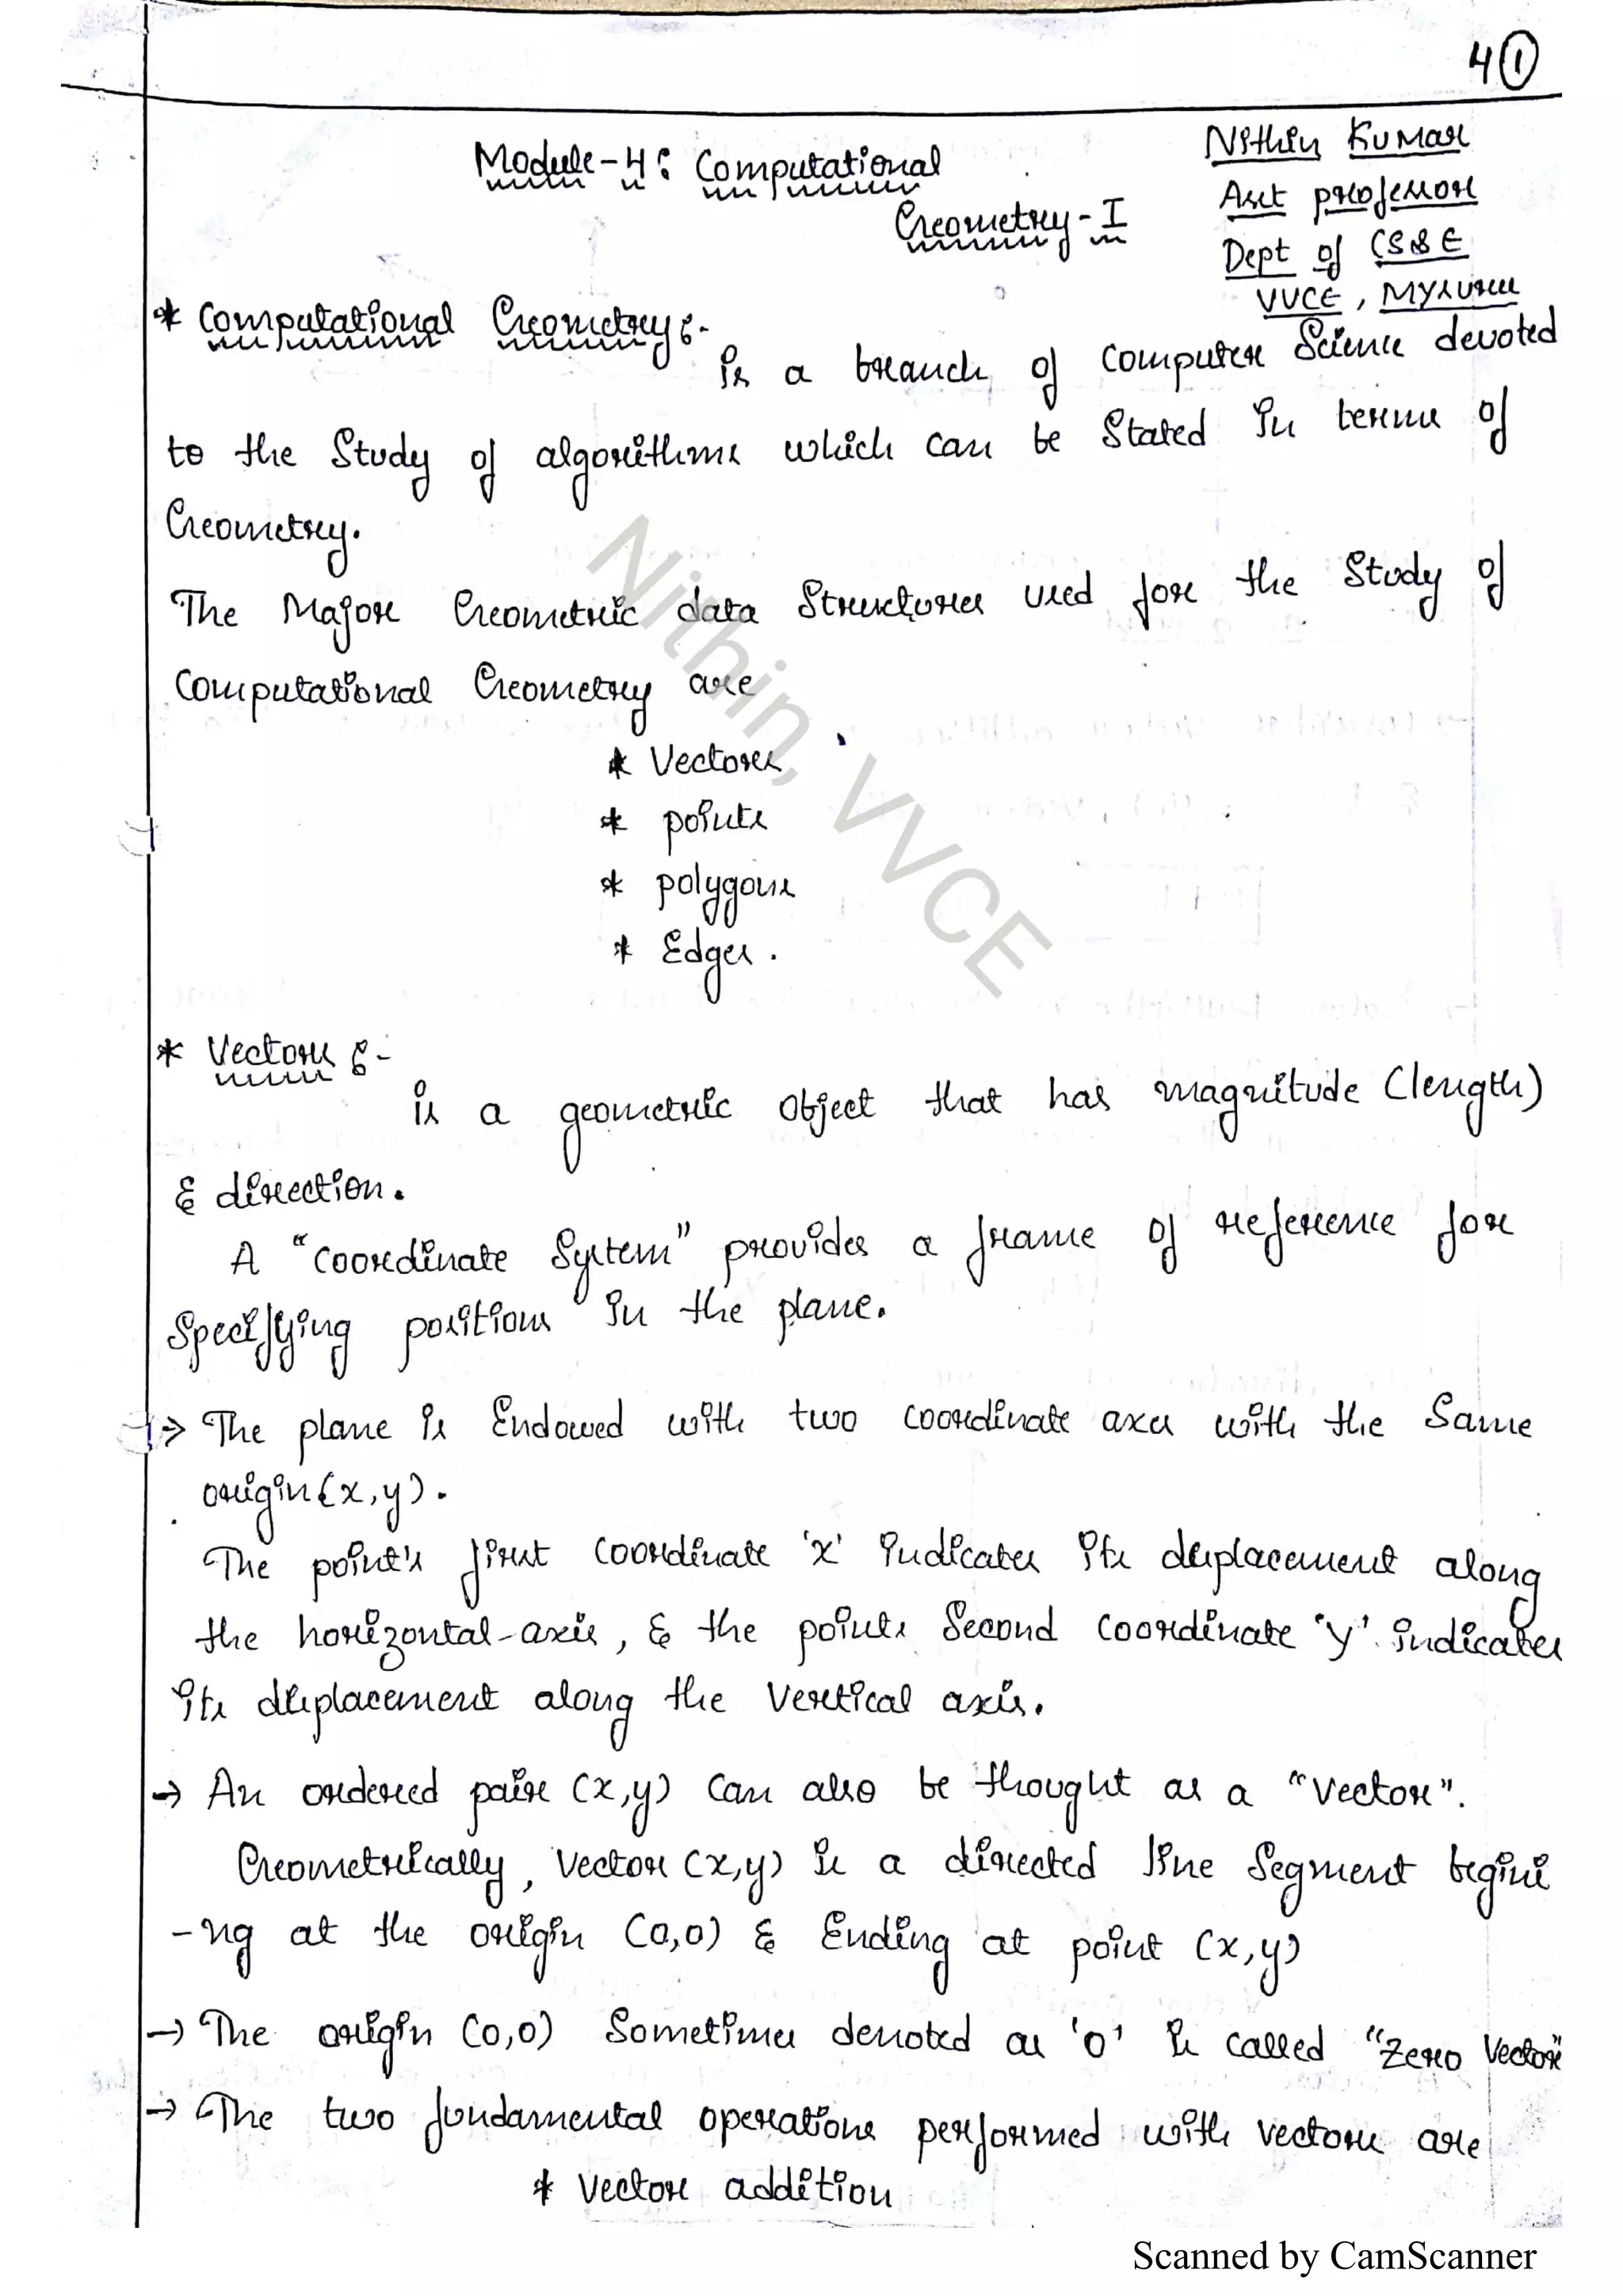 4 ①
Nithin Kumar
Module-4: Computational
Asst professor
Geometry-I
Dept of CS&E
VVCE, Mysuru
* Computational Geometry:-
is a branch of computer Science devoted
to the Study of algorithms which can be Stated in terms of
Geometry.
The Major Geometric data Structures used for the Study of
Computational Geometry are
* Vectors
* points
* polygons
* Edges.
Nithin, VVCE
* Vectors :-
is a geometric object that has magnitude (length)
& direction.
A "coordinate System" provides a frame of reference for
Specifying positions in the plane.
→ The plane is Endowed with two coordinate axes with the Same
origin (x,y).
The point's first coordinate 'x' indicates its displacement along
the horizontal-axis, & the points Second coordinate 'y' indicates
its displacement along the vertical axis.
→ An ordered pair (x,y) can also be thought as a "vector".
Geometrically, vector (x,y) is a directed line Segment begini
-ng at the origin (0,0) & Ending at point (x,y)
→ The origin (0,0) Sometimes denoted as '0' is called "Zero Vector"
→ The two fundamental operations performed with vectors are
* vector addition
Scanned by CamScanner